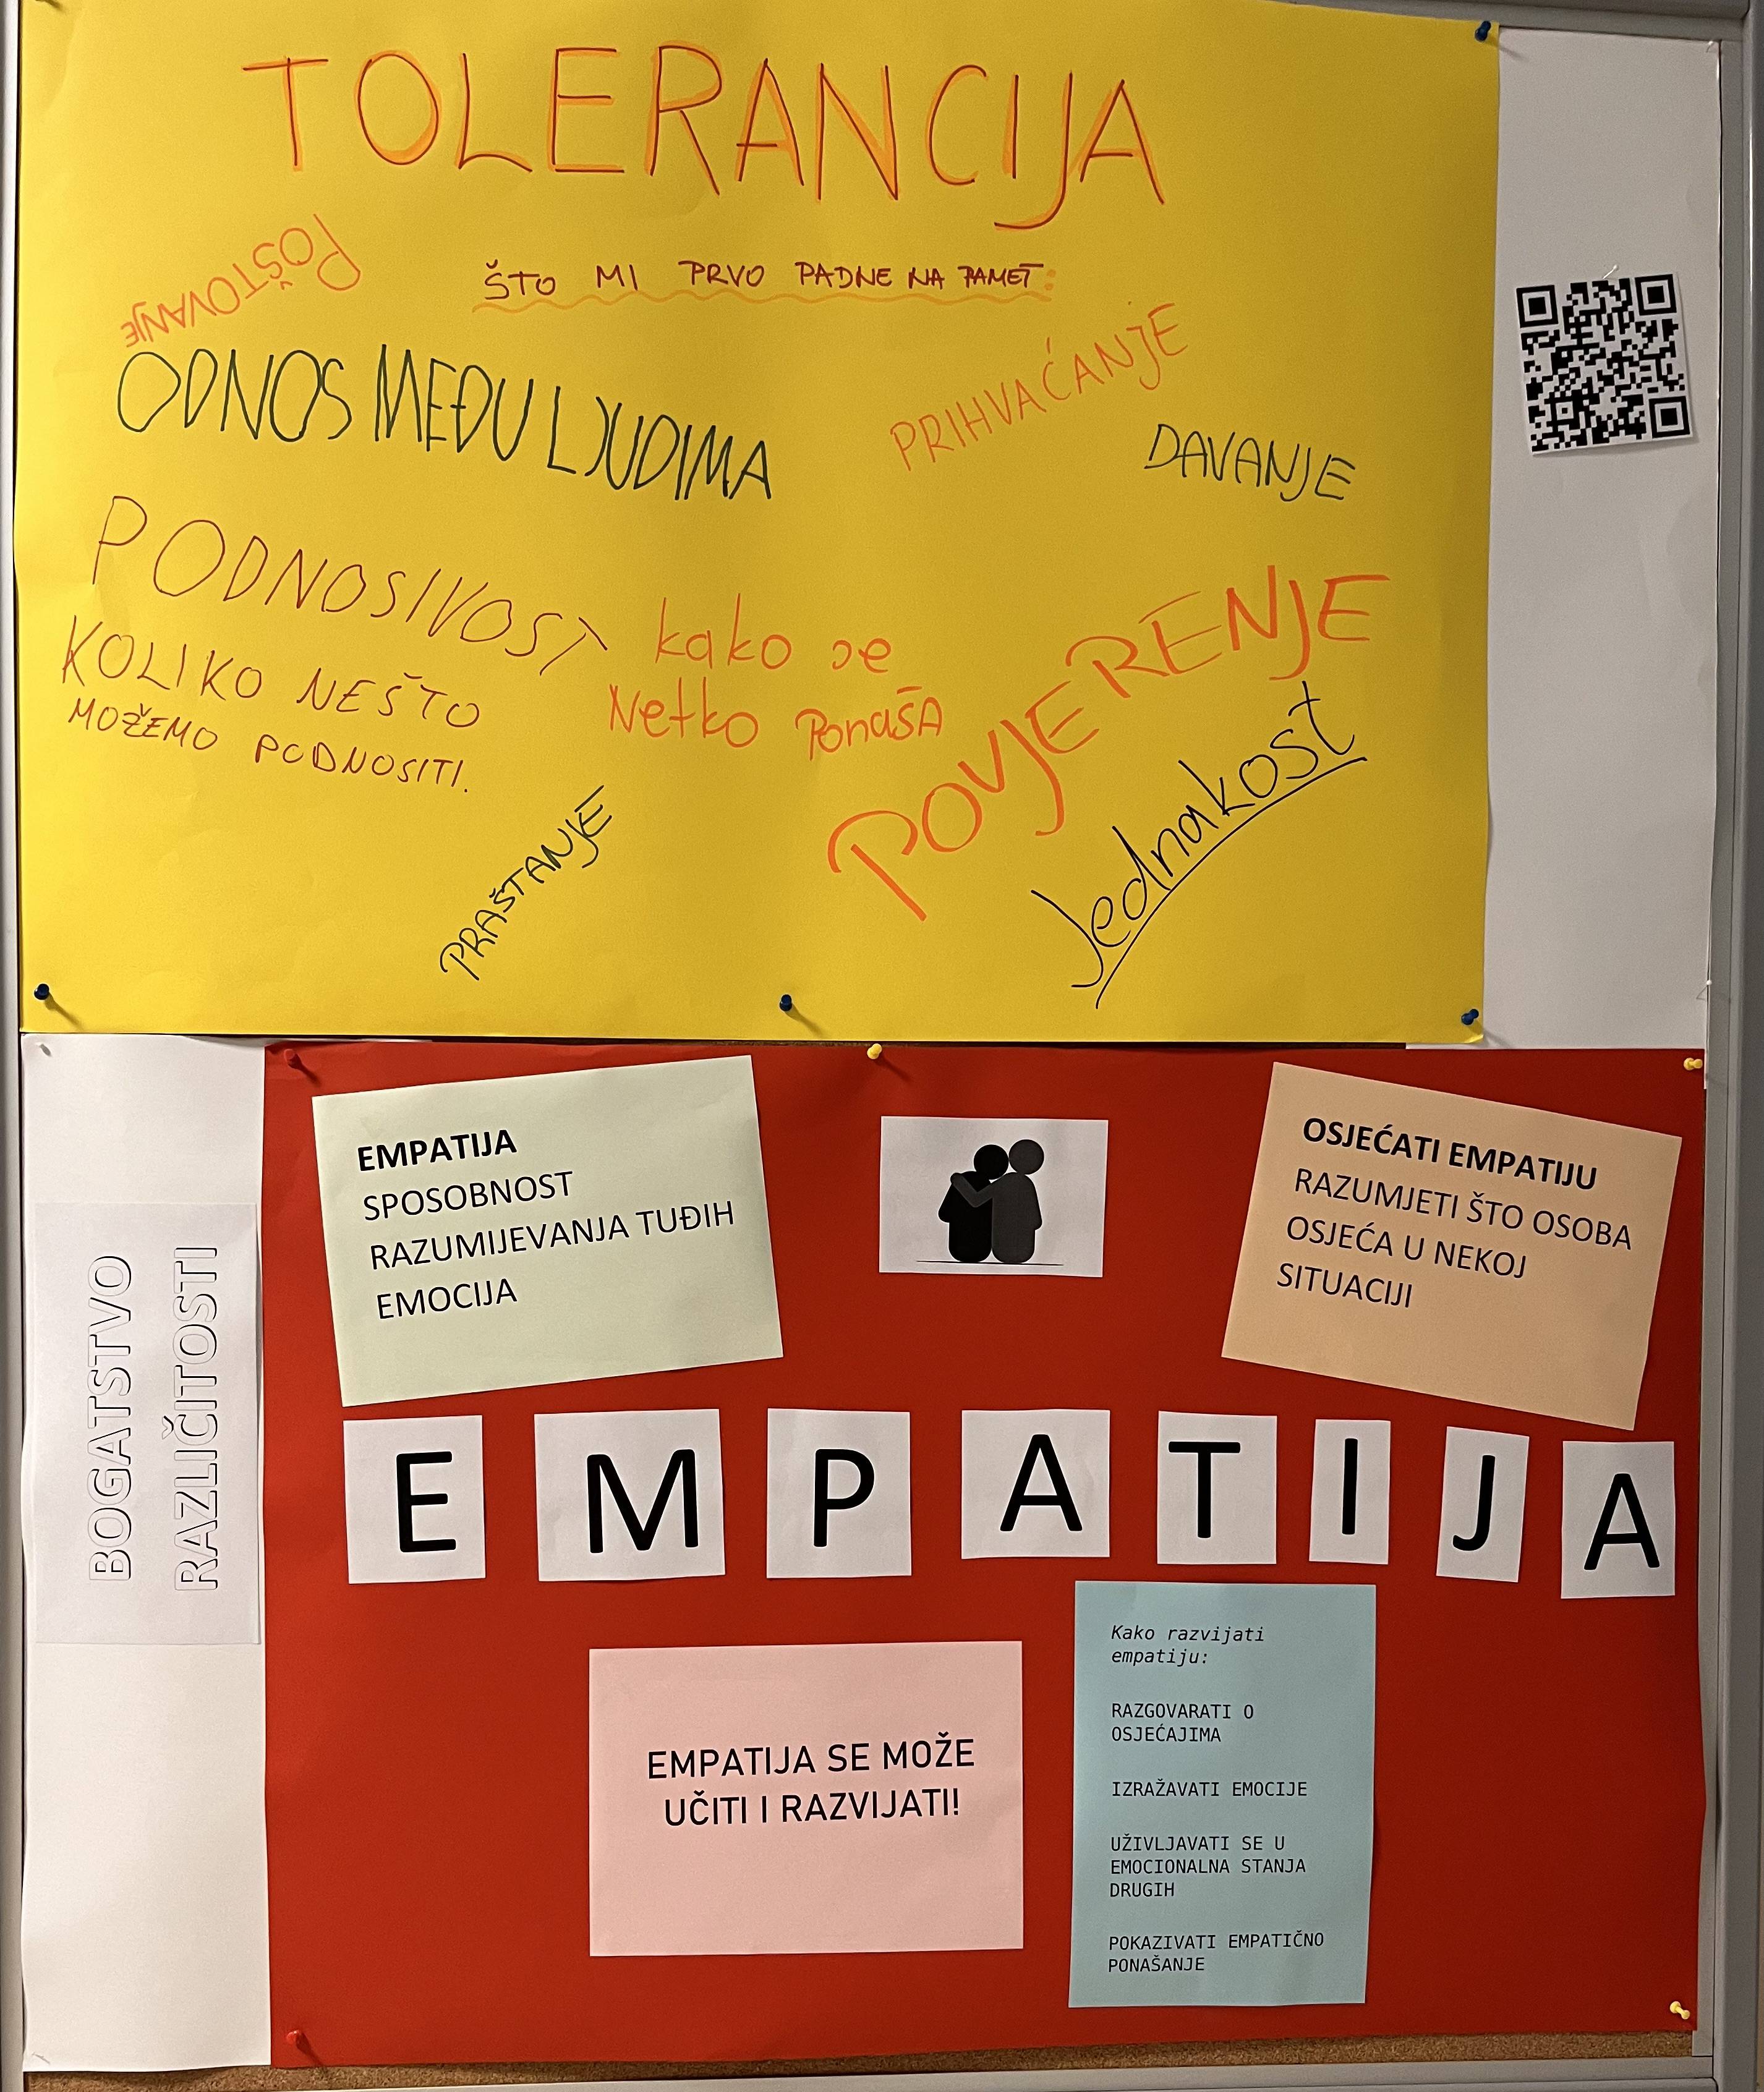 TOLERANCIJA
POŠTOVANJE
ŠTO MI PRVO PADNE NA PAMET:
ODNOS MEĐU LJUDIMA
PRIHVAĆANJE
DAVANJE
PODNOSIVOST
KOLIKO NEŠTO
MOŽEMO PODNOSITI.
kako se
Netko PonaŠA
POVJERENJE
Jednakost
PRAŠTANJE
EMPATIJA
SPOSOBNOST
RAZUMIJEVANJA TUĐIH
EMOCIJA
OSJEĆATI EMPATIJU
RAZUMJETI ŠTO OSOBA
OSJEĆA U NEKOJ
SITUACIJI
BOGATSTVO
RAZLIČITOSTI
EMPATIJA
EMPATIJA SE MOŽE
UČITI I RAZVIJATI!
Kako razvijati
empatiju:
RAZGOVARATI O
OSJEĆAJIMA
IZRAŽAVATI EMOCIJE
UŽIVLJAVATI SE U
EMOCIONALNA STANJA
DRUGIH
POKAZIVATI EMPATIČNO
PONAŠANJE